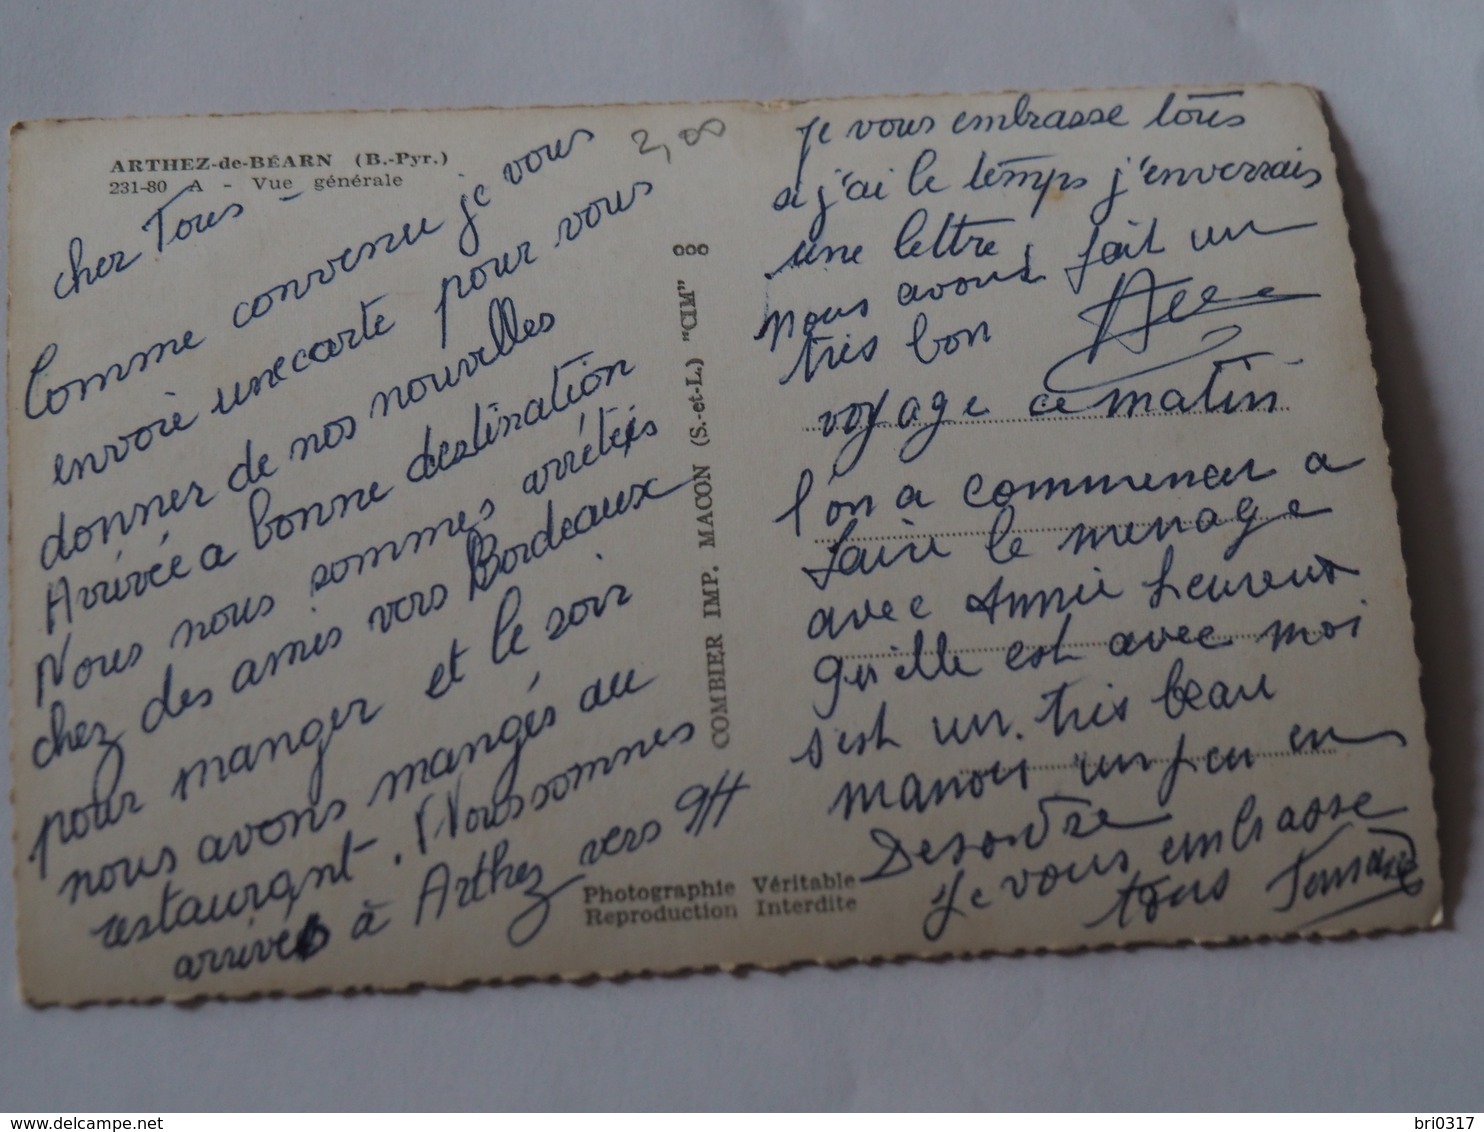 ARTHEZ-de-BÉARN (B.-Pyr.)
231-80 A - Vue générale
2,00
cher Tous -
Comme convenu je vous
envoie une carte pour vous
donner de nos nouvelles
Arrivée a bonne destination
Nous nous sommes arrétés
chez des amis vers Bordeaux
pour manger et le soir
nous avons mangés au
restaurant. Nous sommes
arrivés à Arthez vers 9H
COMBIER IMP. MACON (S.-et-L.) "CIM"
Photographie Véritable
Reproduction Interdite
je vous embrasse tous
si j'ai le temps j'enverrais
une lettre
nous avons fait un
très bon
voyage ce matin
l'on a commencer a
faire le menage
avec Annie heureux
qu'elle est avec moi
s'est un très beau
manoir un peu en
Desordre
je vous embrasse
tous
bri0317
www.delcampe.net